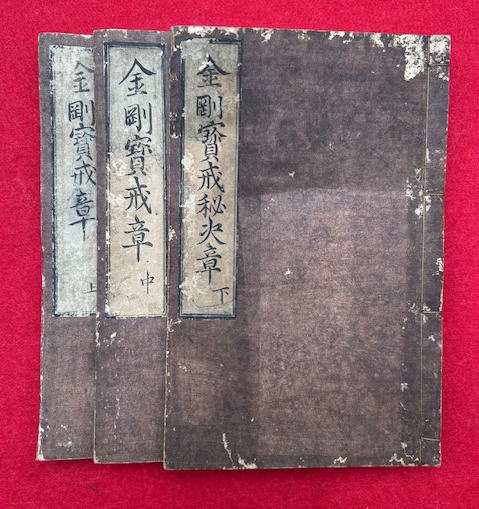 金剛寶戒章 上
金剛寶戒章 中
金剛寶戒秘决章 下